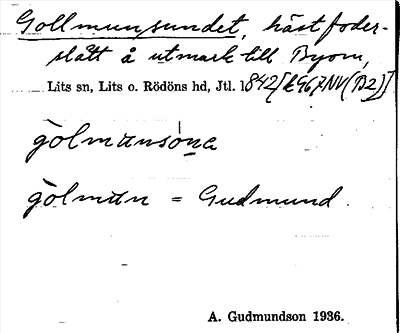 Gollmunsundet, hästfoder-
slått å utmark till Byom,
Lits sn, Lits o. Rödöns hd, Jtl. 1842
gòlmunsóna
gòlmun = Gudmund.
A. Gudmundson 1936.